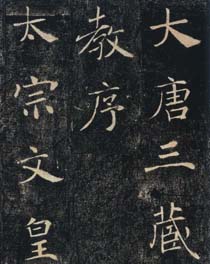 大唐三藏
教序
太宗文皇